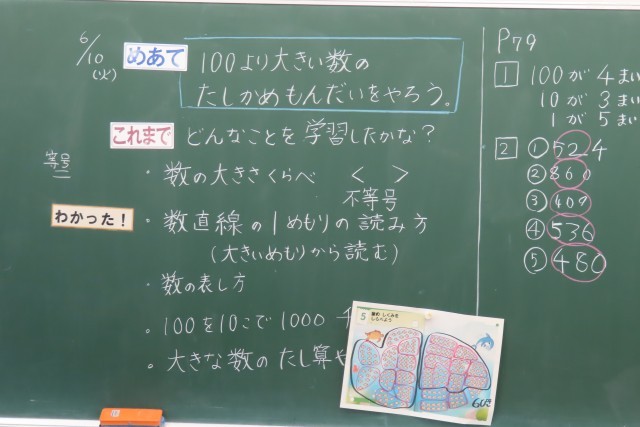 6/10
(火)
めあて
100より大きい数の
たしかめもんだいをやろう。
これまで どんなことを学習したかな?
等号
=
・数の大きさくらべ < >
不等号
わかった!
・数直線の1めもりの読み方
(大きいめもりから読む)
・数の表し方
。100を10こで1000 千
。大きな数のたし算や
5
P79
1 100が4まい
10が3まい
1が5まい
2 ① 524
② 860
③ 409
④ 536
⑤ 480